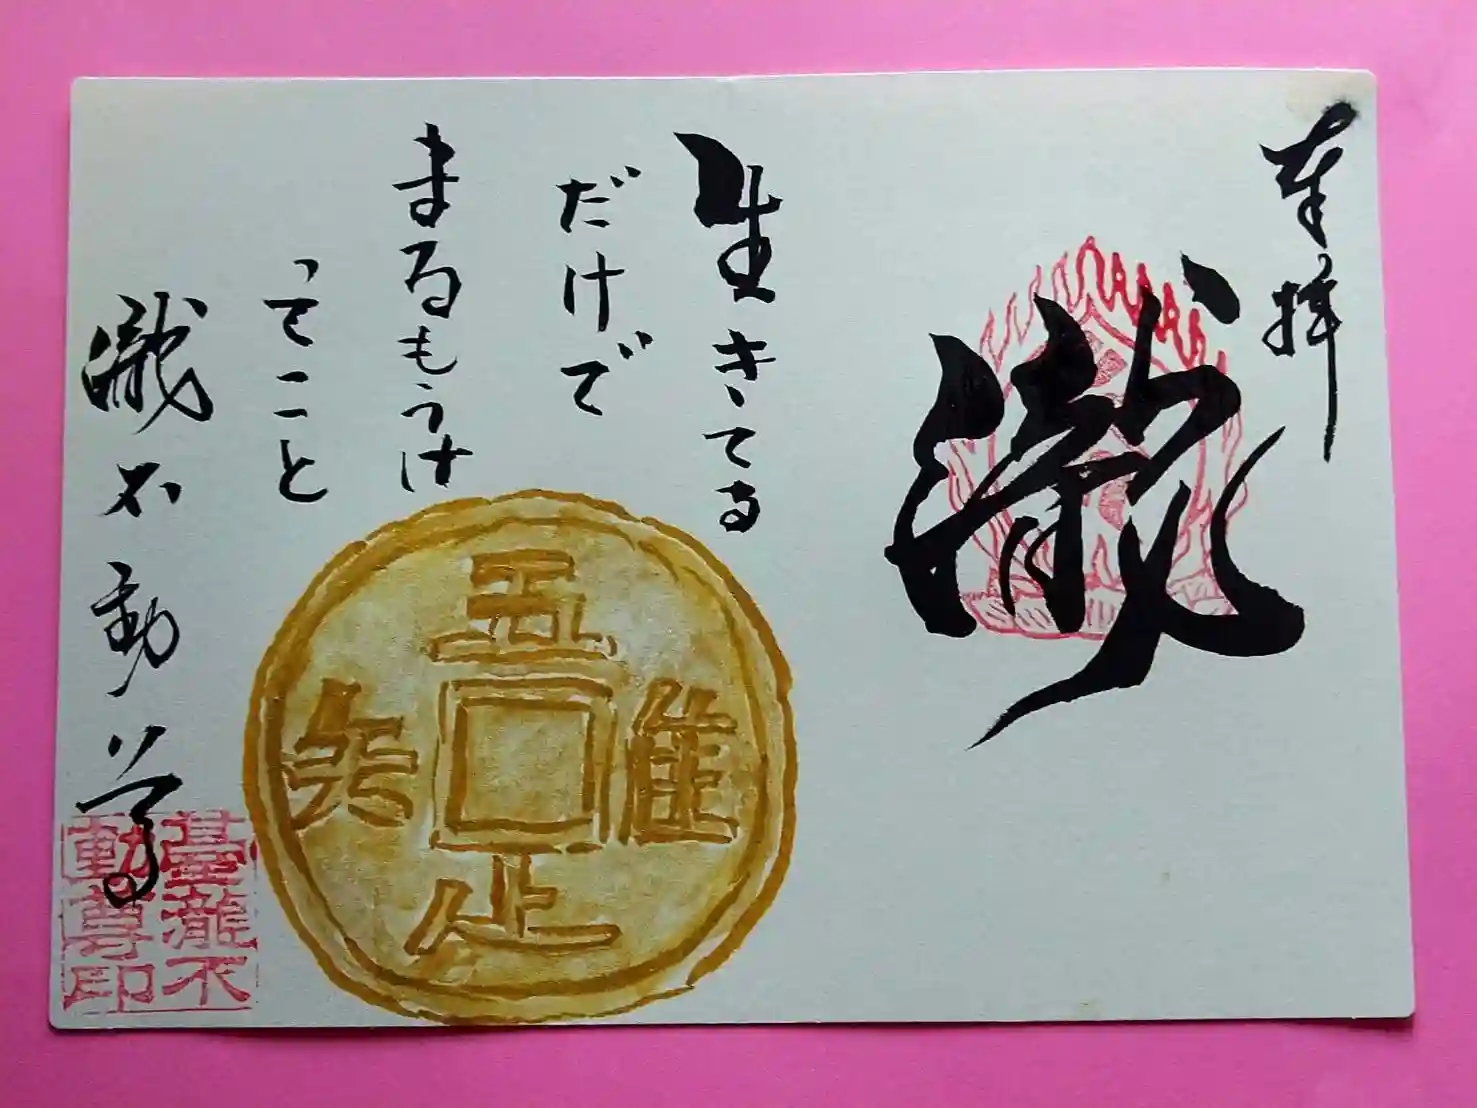 奉拝
瀧
生きてる
だけで
まるもうけ
ってこと
瀧不動尊
五
隹
疋
矢
臺瀧不
動尊印